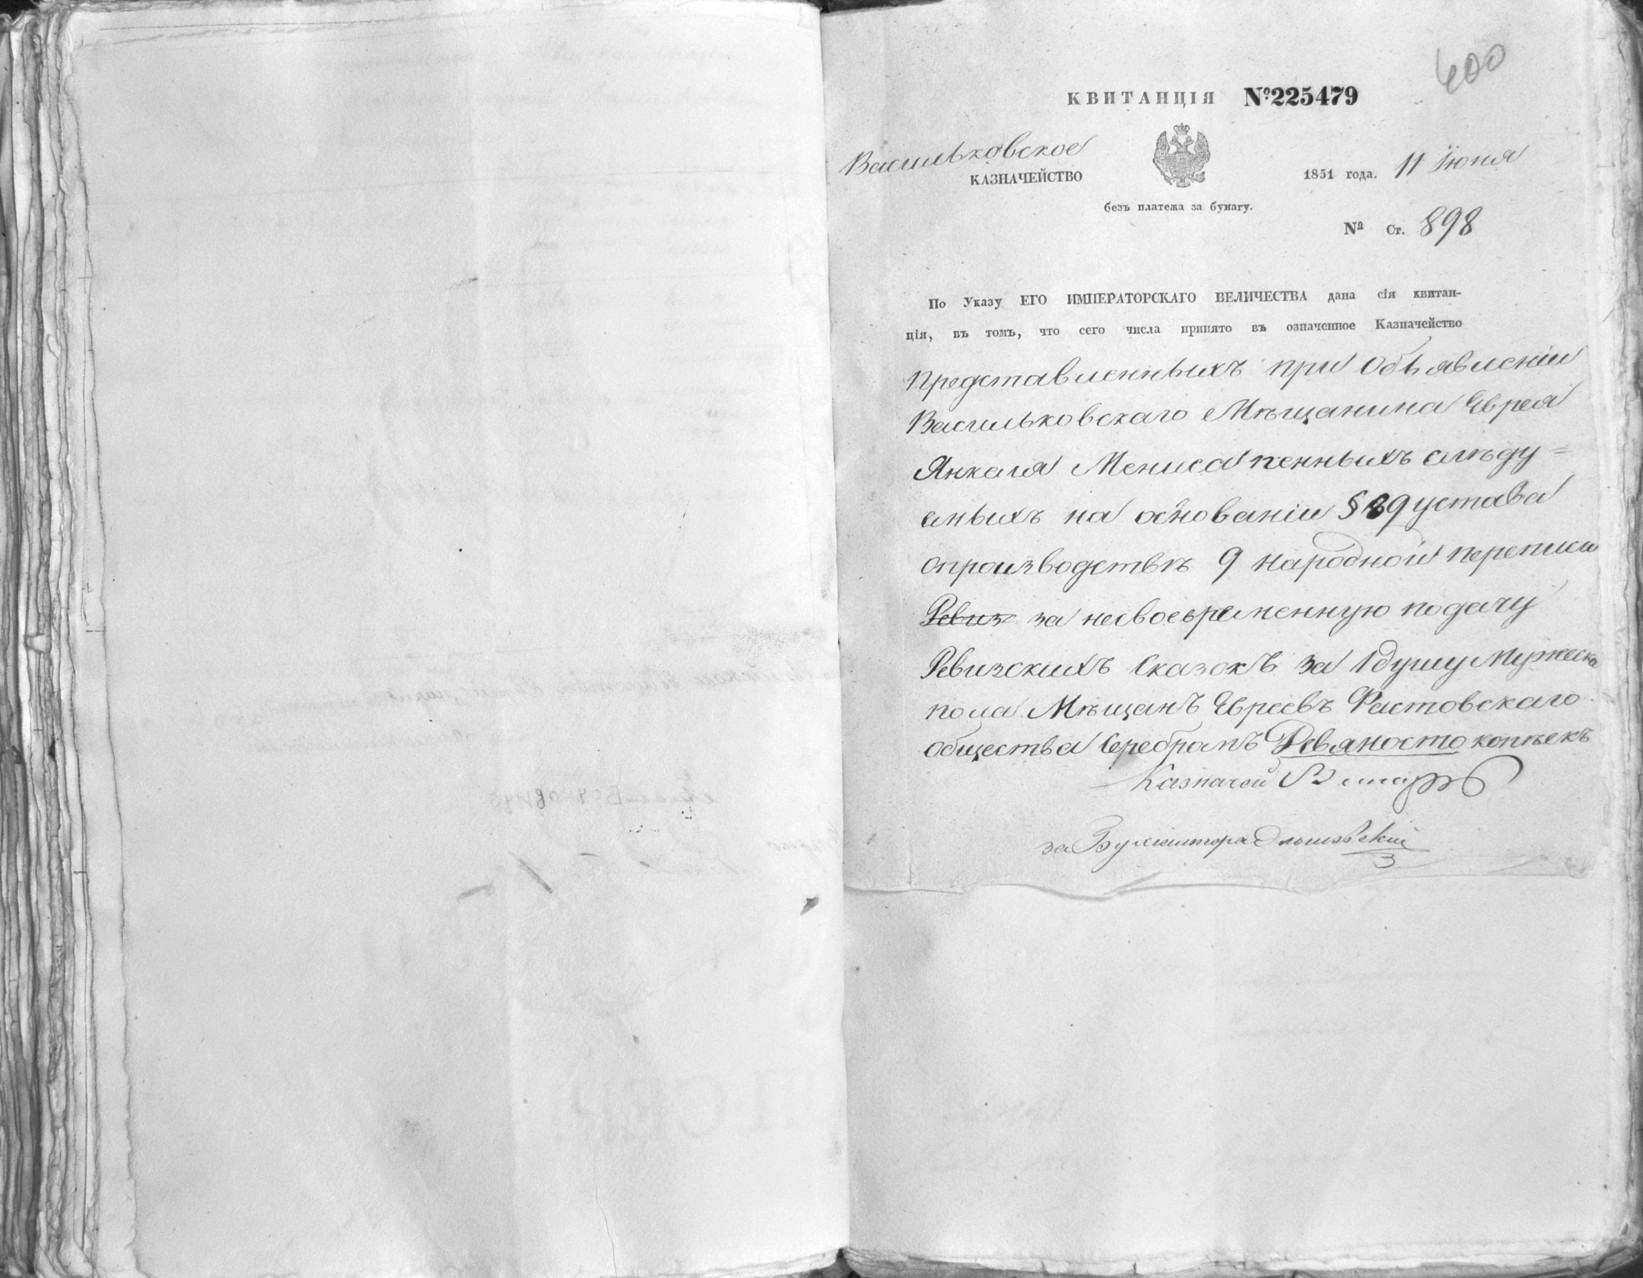 400
КВИТАНЦІЯ №225479
Васильковское
КАЗНАЧЕЙСТВО
1851 года. 11 Іюня
безъ платежа за бумагу.
№ Ст. 898
По Указу ЕГО ИМПЕРАТОРСКАГО ВЕЛИЧЕСТВА дана сія квитан-
ція, въ томъ, что сего числа принято въ означенное Казначейство
Представленныхъ при объявленіи
Васильковскаго Мѣщанина Еврея
Янкеля Мениса пенныхъ слѣду=
емыхъ на основаніи § 89 устава
опроизводствѣ 9 народной переписи
Ревиз за несвоевременную подачу
Ревизскихъ Сказокъ за 1 душу Мужеска
пола Мѣщанъ Евреевъ Фастовскаго
общества Серебромъ Девяносто копѣекъ
Казначей
за Бухгалтера